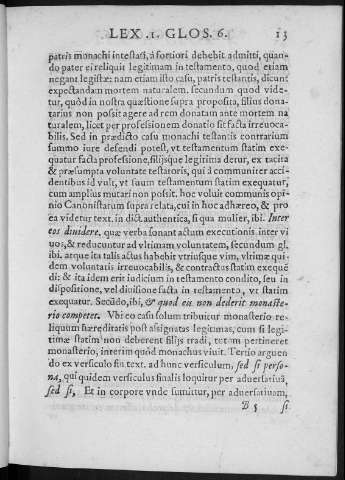 LEX .1. GLOS. 6. 13
patris monachi intestati, à fortiori debebit admitti, quan-
do pater ei reliquit legitimam in testamento, quod etiam
negant legistæ: nam etiam isto casu, patris testantis, dicunt
expectandam mortem naturalem. secundum quod vide-
tur, quòd in nostra quæstione supra proposita, filius dona-
tarius non possit agere ad rem donatam ante mortem na
turalem, licet per professionem donatio sit facta irreuoca-
bilis. Sed in prædicto casu monachi testantis contrarium
summo iure defendi potest, vt testamentum statim exe-
quatur facta professione, filijsque legitima detur, ex tacita
& præsumpta voluntate testatoris, qui à communiter acci-
dentibus id vult, vt suum testamentum statim exequatur,
cum amplius mutari non possit. hoc voluit communis opi
nio Canonistarum supra relata, cui in hoc adhæreo, & pro
ea videtur text. in dict. authentica, si qua mulier, ibi. Inter
eos diuidere, quæ verba sonant actum executionis. inter vi
uos, & reducuntur ad vltimam voluntatem, secundum gl.
ibi. atque ita talis actus habebit vtriusque vim, vltimæ qui-
dem voluntatis irreuocabilis, & contractus statim exequẽ
di: & ita idem erit iudicium in testamento condito, seu in
dispositione, vel diuisione facta in testamento, vt statim
exequatur. Secũdo, ibi, & quod eis non dederit monaste-
rio competer. Vbi eo casu solum tribuitur monasterio re-
liquum hæreditatis post assignatas legitimas, cum si legi-
timæ statim non deberent filijs tradi, totum pertineret
monasterio, interim quòd monachus viuit. Tertio arguen
do ex versiculo fin. text. ad hunc versiculum, sed si perso-
na, qui quidem versiculus finalis loquitur per aduersatiuã,
sed si, Et in corpore vnde sumitur, per aduersatiuam,
B 5 si